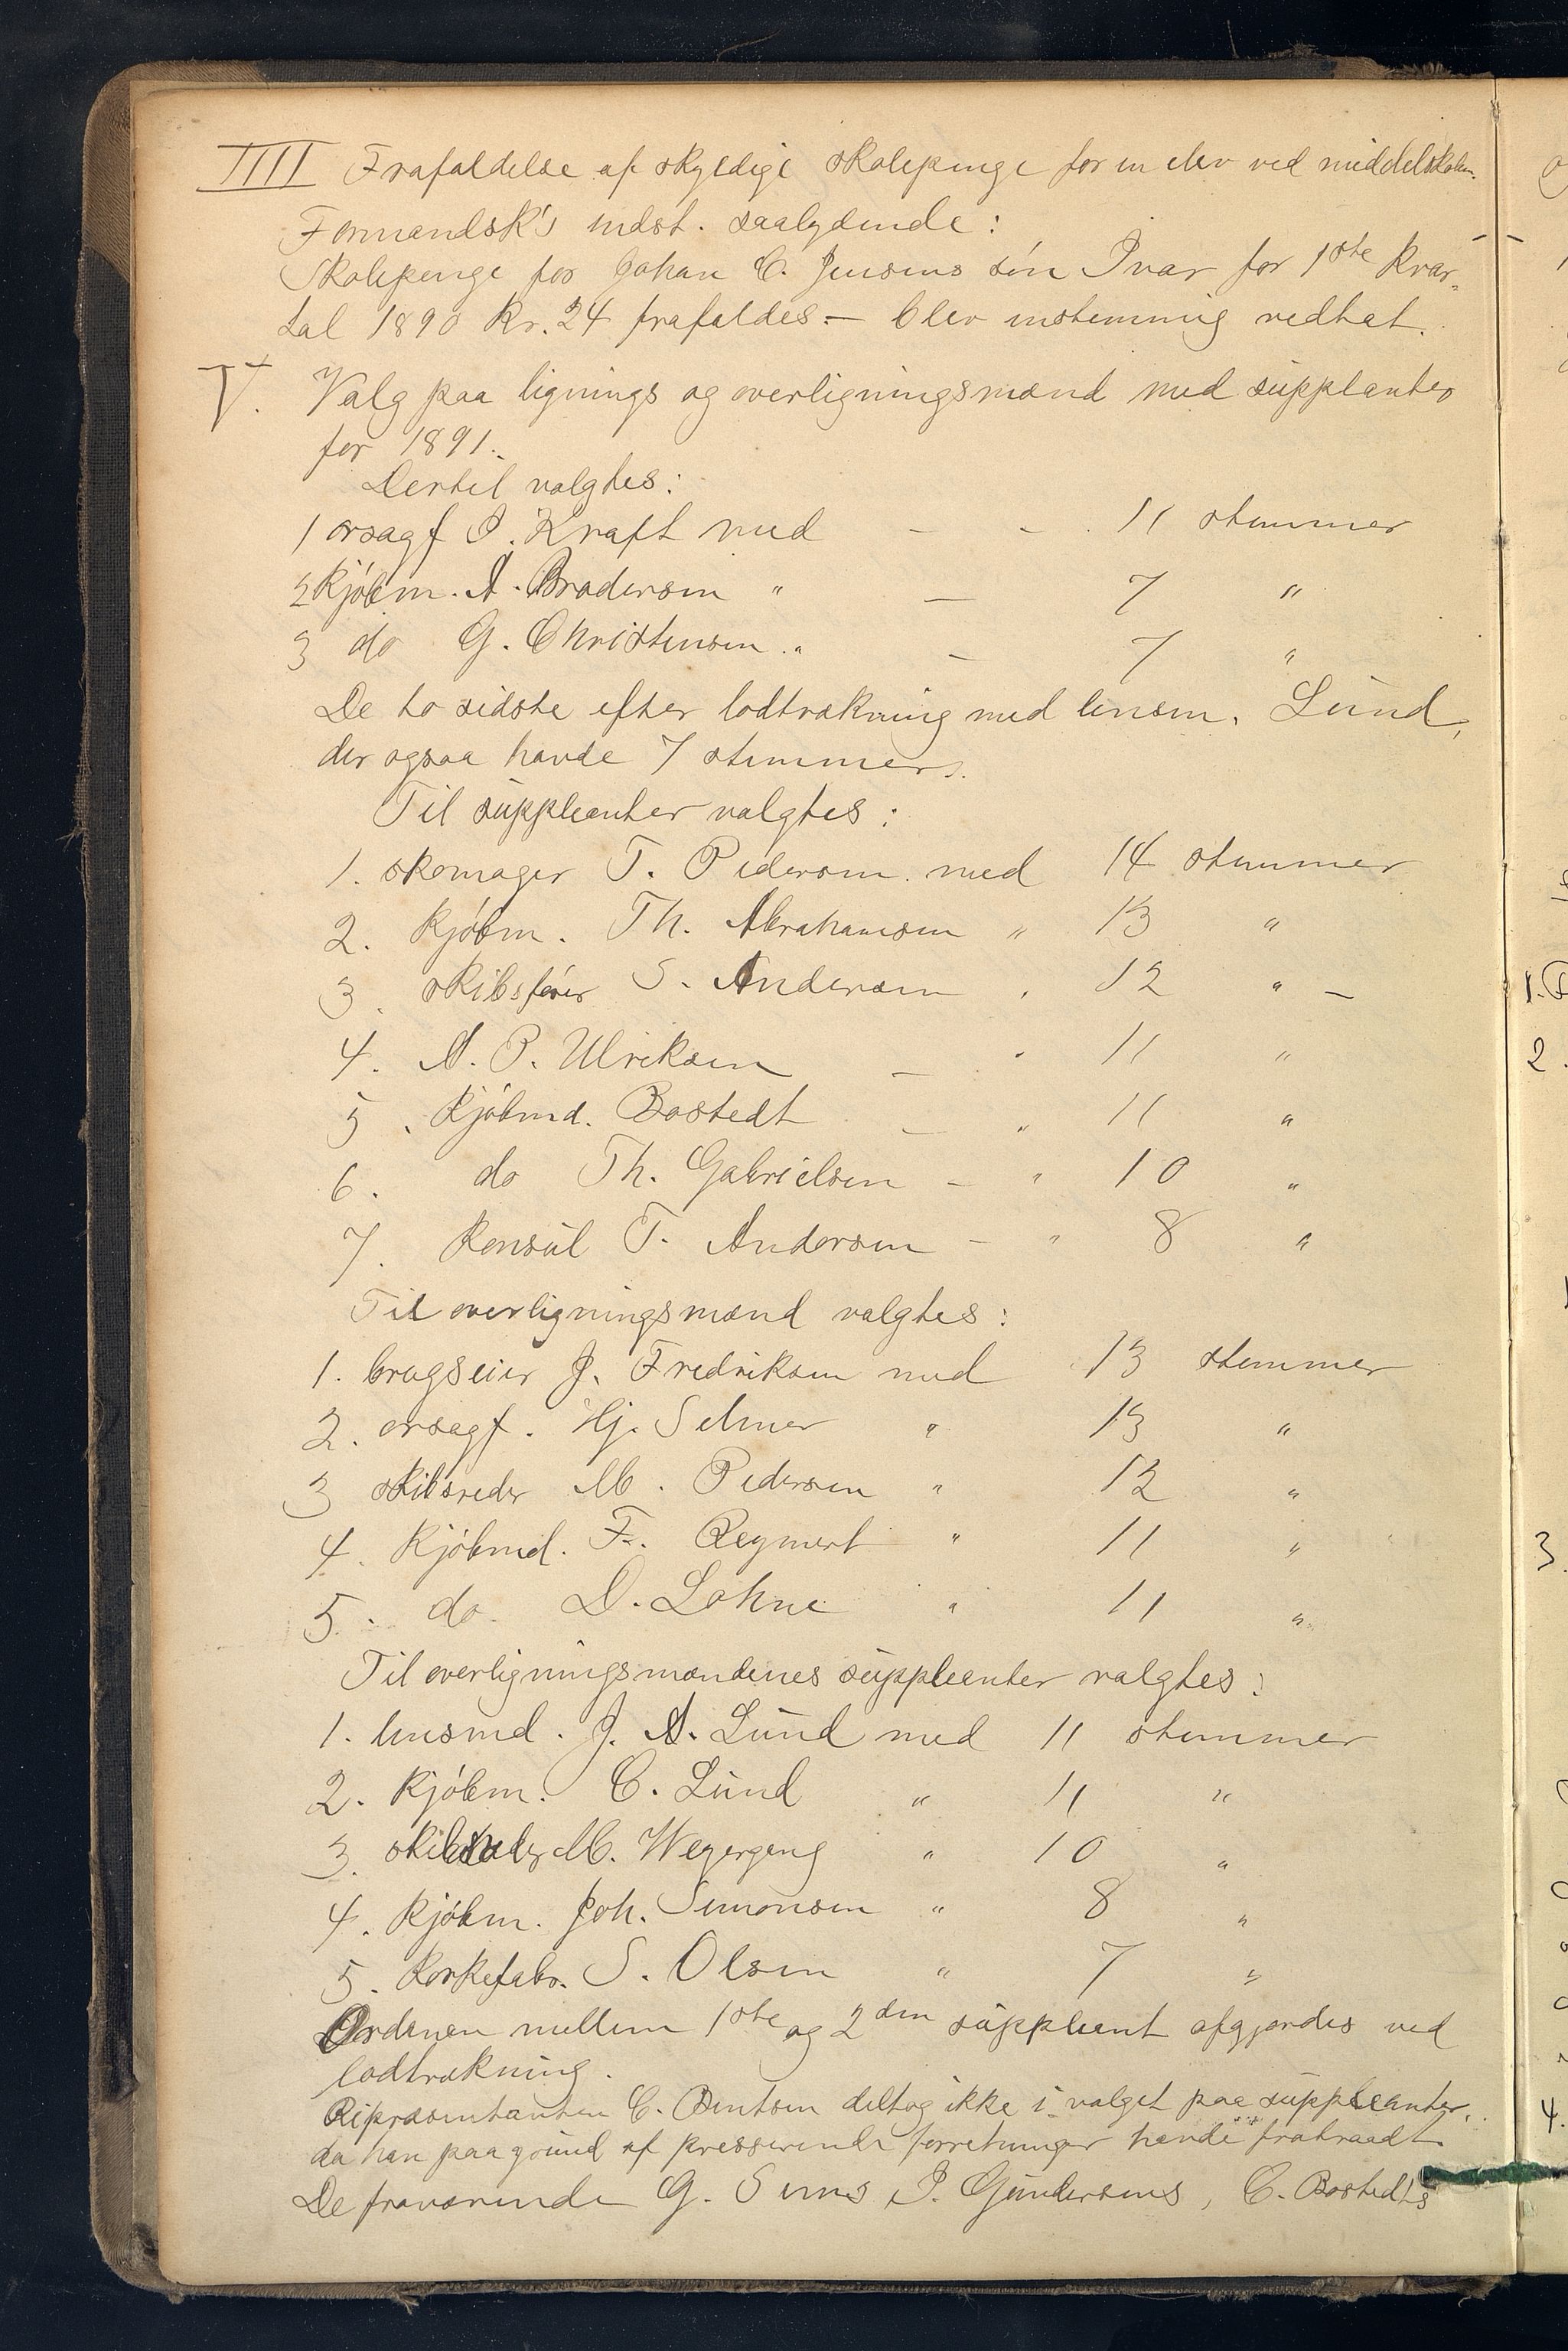 IIII Frafaldelse af skyldige skolepenge for en elev ved middelskolen.
Formandsk's indst. saalydende:
Skolepenge for Johan C. Jensens søn Ivar for 1ste kvar-
tal 1890 Kr. 24 frafaldes. — Blev enstemmig vedtat.
V. Valg paa lignings og overligningsmænd med supplanter
for 1891.
Dertil valgtes:
1 orsagf I. Kraft med — - 11 stemmer
2 Kjøbm. A. Brodersen " — 7 "
3 do G. Christensen " — 7 "
De to sidste efter lodtrækning med lensm. Lund,
der ogsaa havde 7 stemmer.
Til suppleanter valgtes:
1. skomager T. Pedersen med 14 stemmer
2. Kjøbm. Th. Abrahamsen " 13 "
3. skibsfører S. Andersen " 12 " —
4. A. P. Ulriksen — " 11 "
5. Kjøbmd. Bostedt — " 11 "
6. do Th. Gabrielsen — " 10 "
7. Konsul T. Andersen — " 8 "
Til overligningsmænd valgtes:
1. brugseier J. Fredriksen med 13 stemmer
2. orsagf. Hj. Selmer " 13 "
3 skibsreder M. Pedersen " 12 "
4. Kjøbmd. F. Reymert " 11 "
5. do. D. Lohne " 11 "
Til overligningsmændenes suppleanter valgtes:
1. lensmd. J. A. Lund med 11 stemmer
2. Kjøbm. C. Lund " 11 "
3. skibsreder M. Wegergang " 10 "
4. Kjøbm. Joh. Simonsen " 8 "
5. Korkefabr. S. Olsen " 7 "
Ordenen mellem 1ste og 2den suppleant afgjordes ved
lodtrækning.
Repræsentanten C. Bentsen deltog ikke i valget paa suppleanter,
da han paa grund af presserende forretninger havde fratraadt.
De fraværende G. Sems, I. Gundersens, C. Bostedts